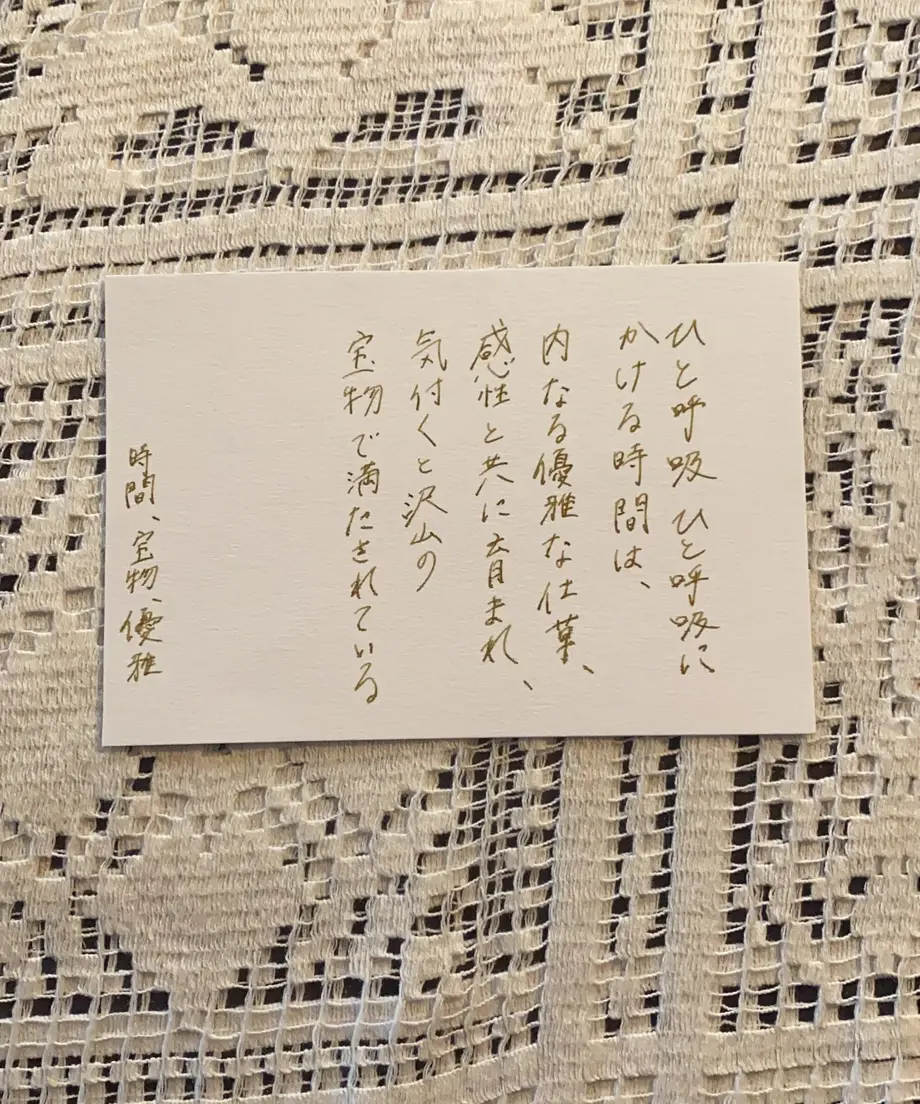 ひと呼吸 ひと呼吸に
かける時間は、
内なる優雅な仕草、
感性と共に育まれ、
気付くと沢山の
宝物で満たされている
時間、宝物、優雅